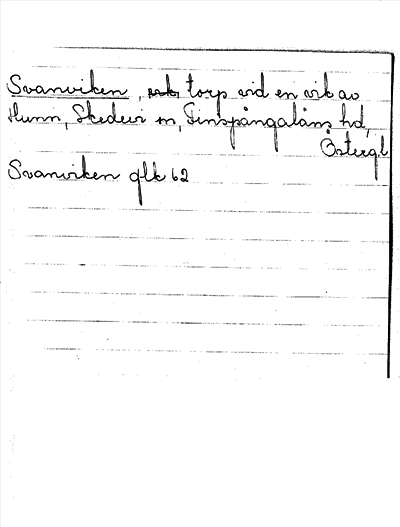 Svanviken, torp vid en vik av
Hunn, Skedevi sn, Finspångaläns hd,
Östergl
Svanviken glk 62